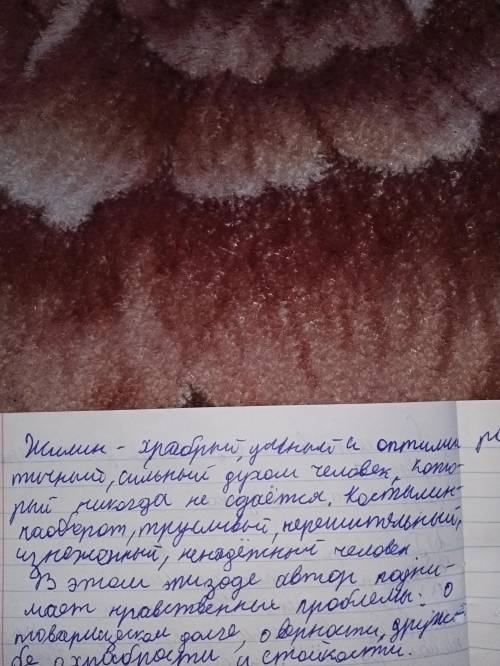 Жилин - храбрый, умный и оптимис
тичный, сильный духом человек, кото-
рый никогда не сдаётся. Костылин-
наоборот, трусливый, нерешительный,
изнеженный, ненадёжный человек.
В этом эпизоде автор подни-
мает нравственные проблемы: о
товарищеском долге, о верности, друж-
бе, о храбрости и стойкости.